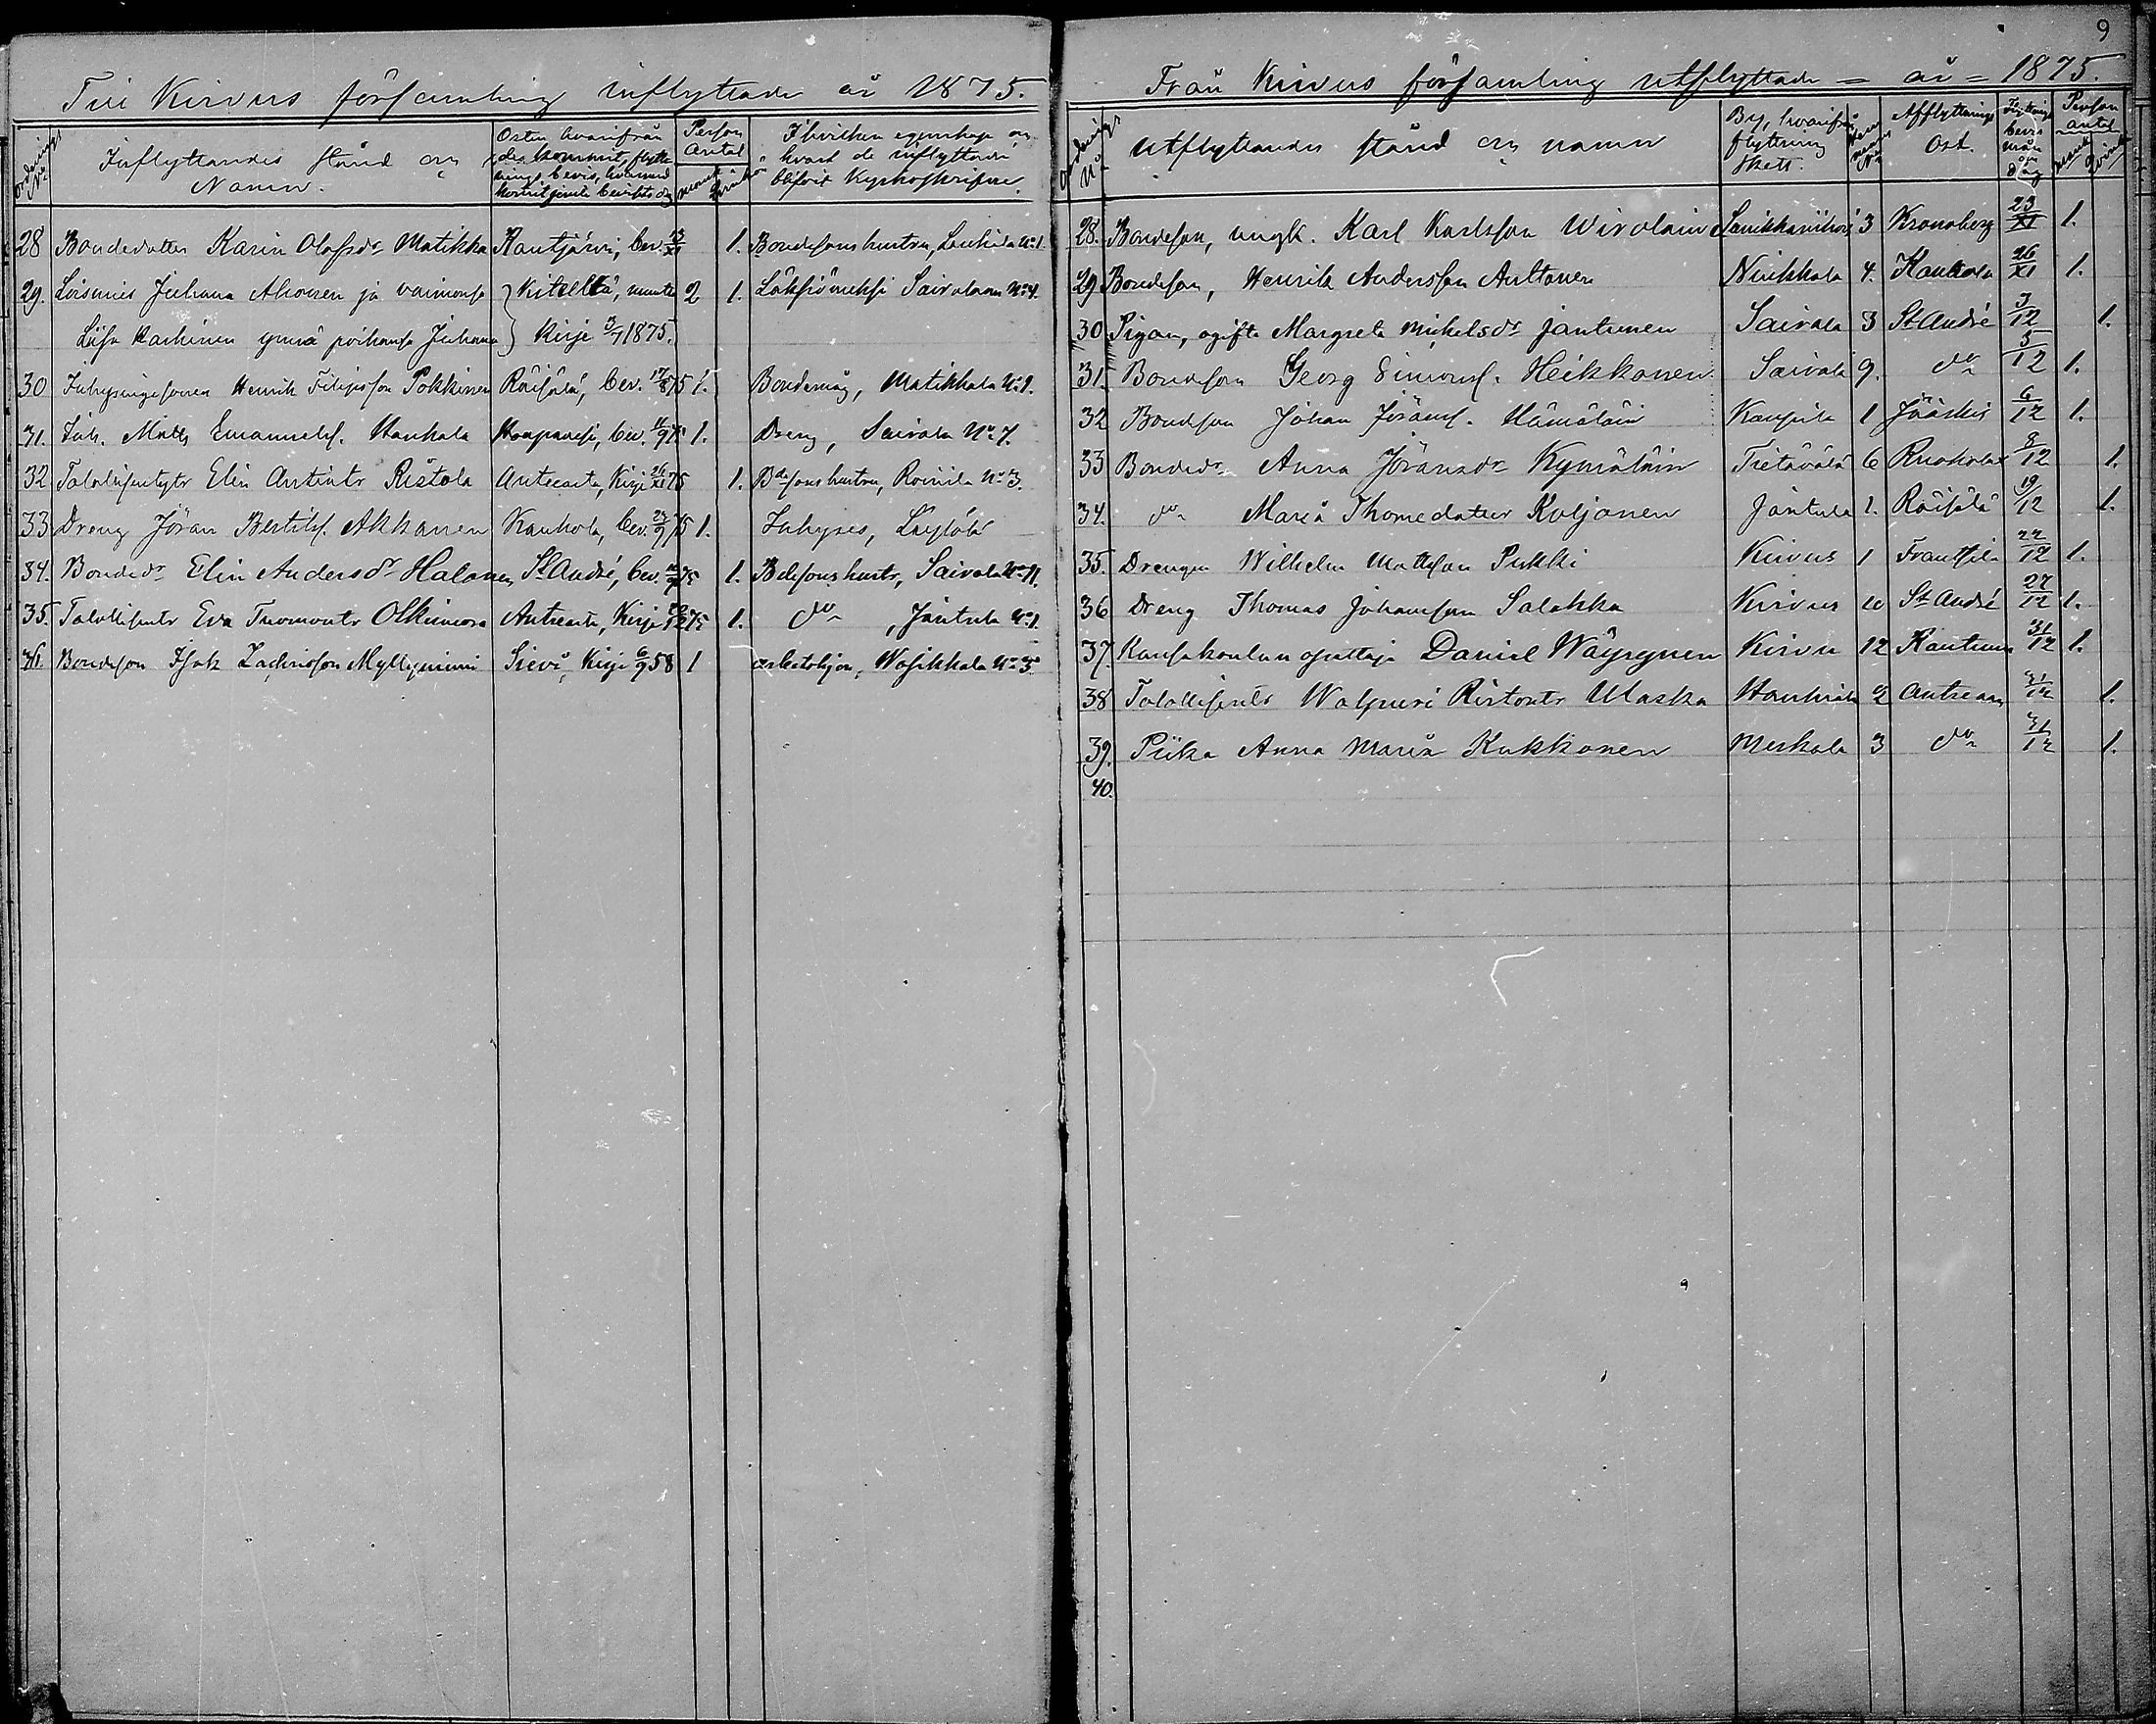 Till Kirvus församling inflyttade år 1875.
Ordnings No
Inflyttandes stånd och Namn.
Orten hvarifrån de kommit, flyttnings bevis, hvarmed
Person Antal
Mank. Qvink.
I hvilken egenskap och hvart de inflyttade blifvit kyrkoskrifne.
28 Bondedotter Karin Olofsdr Matikka Rautjärvi, bev. 13/XI 1. Bondesons hustru, No 1.
29. Loismies Juhana Ahonen ja vaimonsa Kitellä, muutto 2 1. Läksiömeksi Sairalaan No 4.
Liisa Karhinen ynnä poikansa Juhana kirje 3/7 1875.
30 Inhysingesonen Henrik Filipsson Pokkinen Räisälä, bev. 17/8 75 1. Bondemåg, Matikkala No 1.
31. Inh. Matts Emanuelss. Haukala bev. 11/9 75 1. Dreng, Sairala No 7.
32 Talollisentytr Elin Antintr Ristola Antreasta, Kirje 26/XI 75 1. Bdesons hustru, No 3.
33 Dreng Jöran Bertilss. Akkanen Kaukola, bev. 23/9 75 1. Inhyses,
34. Bondedr Elin Andersdr Halonen St André, bev. 75 1. Bdesons hustr, Sairala No 11.
35. Talollisentr Eva Tuomontr Olkinuora Antreasta, Kirje 75 1. do , Jäntula No 1.
36. Bondeson Isak Zachrisson Myllyniemi Sievi, Kirje 6/9 58 1 arbetskjon, Wosikkala No 3.
9
Från Kirvus församling utflyttade = år = 1875.
Ordnings No
Utflyttandes stånd och namn
By, hvarifrån flyttning skett.
Hemmans No
Afflyttnings Ort.
Flyttnings bevis mån och dag
Person antal
Mank. Qvink.
28. Bondeson, ungk. Karl Karlsson Wirolain 3 Kronoborg 23/XI 1.
29 Bondeson, Henrik Andersson Anttonen Ninikkala 4. Kaukola 26/XI 1.
30 Pigan, ogifta Margreta Mickelsdr Jantunen Sairala 3 St André 3/12 1.
31. Bondeson Georg Simonss. Heikkonen Sairala 9. do 5/12 1.
32 Bondeson Johan Jöranss. Hämäläin 1 Jääskis 6/12 1.
33 Bondedr Anna Jöransdr Kymäläin Tietävälä 6 Ruokolax 8/12 1.
34. do Maria Thomedotter Koljonen Jäntula 1. Räisälä 19/12 1.
35. Drengen Wilhelm Mattsson Pukki Kirvus 1 Frantsila 22/12 1.
36 Dreng Thomas Johansson Salakka Kirvus 10 St André 27/12 1.
37 Kansakoulun opettaja Daniel Wäyrynen Kirvu 12 31/12 1.
38 Talollisentr Walpuri Ristontr Ulaska 2 Antreaan 31/12 1.
39. Piika Anna Maria Kukkonen Merkola 3 do 31/12 1.
40.